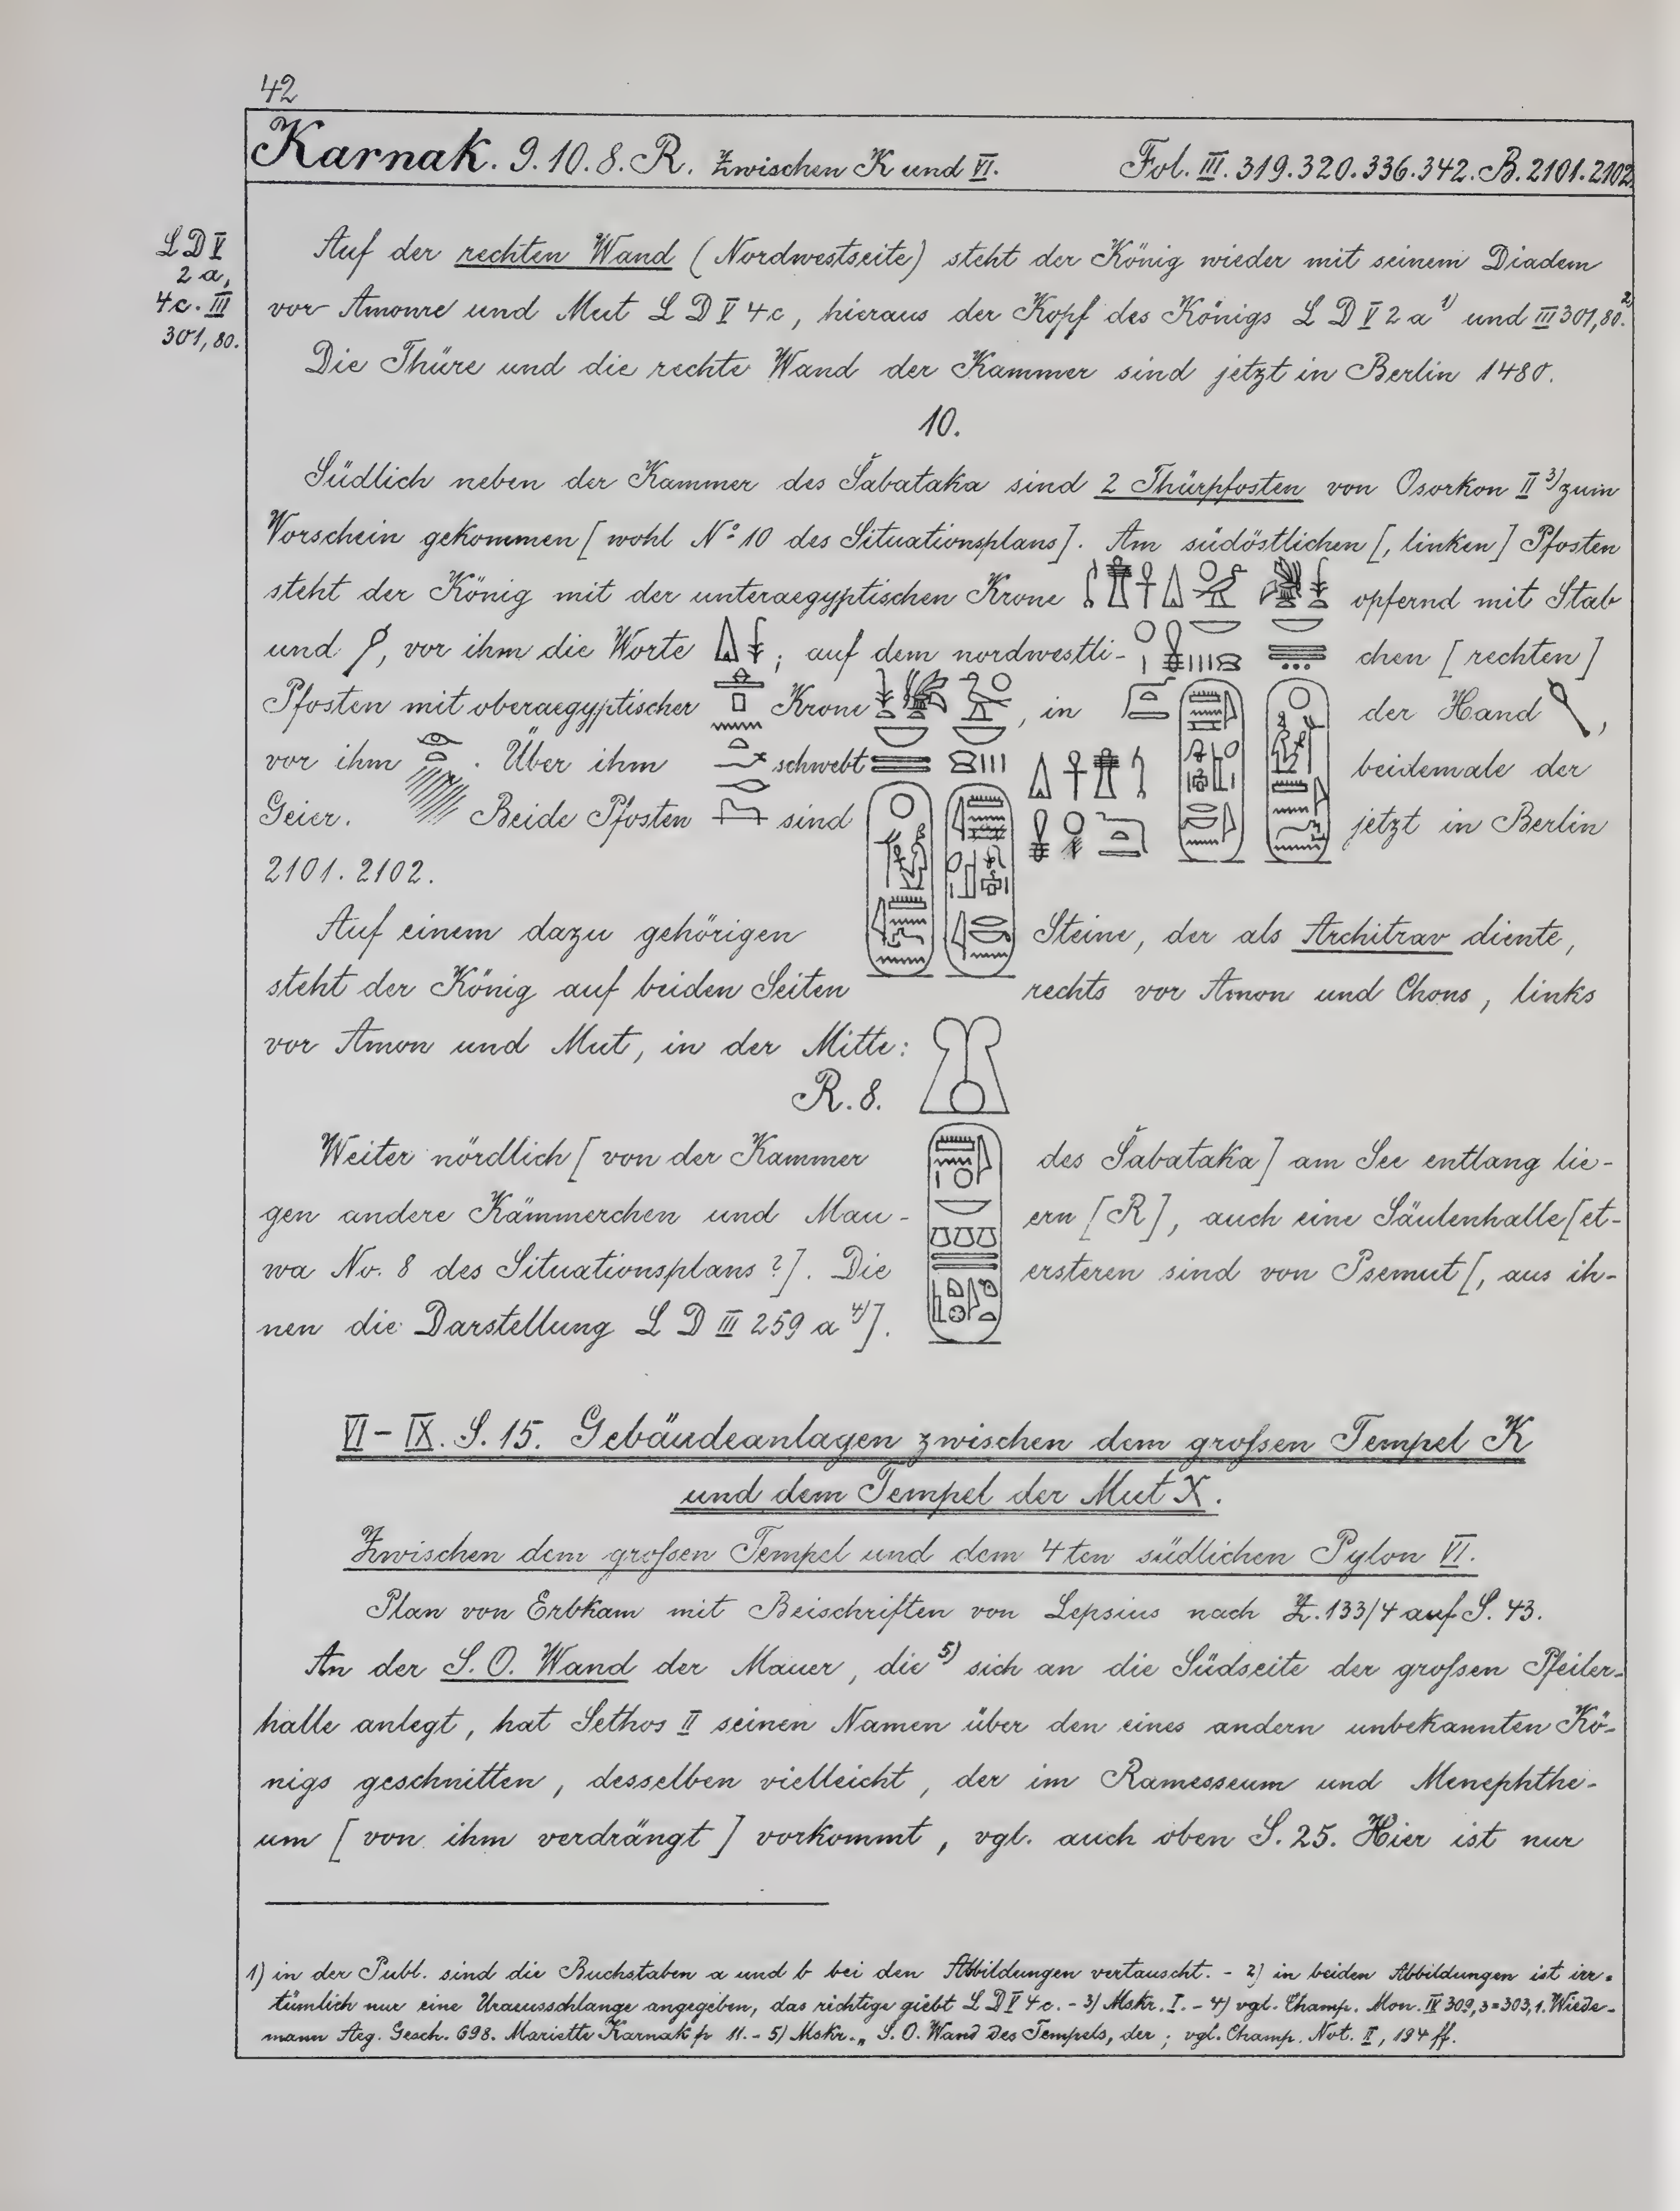 42
Karnak. 9.10.8. R. Zwischen K und VI. Fol. III. 319.320.336.342. B. 2101.2102.
L D V
2 a,
4c. III
301, 80.
Auf der rechten Wand (Nordwestseite) steht der König wieder mit seinem Diadem
vor Amonre und Mut L D V 4c, hieraus der Kopf des Königs L D V 2 a 1) und III 301, 80. 2)
Die Thüre und die rechte Wand der Kammer sind jetzt in Berlin 1480.
10.
Südlich neben der Kammer des Šabataka sind 2 Thürpfosten von Osorkon II 3) zum
Vorschein gekommen [wohl No 10 des Situationsplans]. Am südöstlichen [, linken] Pfosten
steht der König mit der unteraegyptischen Krone opfernd mit Stab
und , vor ihm die Worte ; auf dem nordwestli- chen [rechten]
Pfosten mit oberaegyptischer Krone , in der Hand ,
vor ihm . Über ihm schwebt beidemale der
Geier. Beide Pfosten sind jetzt in Berlin
2101. 2102.
Auf einem dazu gehörigen Steine, der als Architrav diente,
steht der König auf beiden Seiten rechts vor Amon und Chons, links
vor Amon und Mut, in der Mitte:
R. 8.
Weiter nördlich [von der Kammer des Šabataka] am See entlang lie-
gen andere Kämmerchen und Mau- ern [R], auch eine Säulenhalle [et-
wa No. 8 des Situationsplans ?]. Die ersteren sind von Psemut [, aus ih-
nen die Darstellung L D III 259 a 4)].
VI – IX. S. 15. Gebäudeanlagen zwischen dem grossen Tempel K
und dem Tempel der Mut X.
Zwischen dem grossen Tempel und dem 4ten südlichen Pylon VI.
Plan von Erbkam mit Beischriften von Lepsius nach Z. 133/4 auf S. 43.
An der S. O. Wand der Mauer, die 5) sich an die Südseite der grossen Pfeiler-
halle anlegt, hat Sethos II seinen Namen über den eines andern unbekannten Kö-
nigs geschnitten, desselben vielleicht, der im Ramesseum und Menephthe-
um [von ihm verdrängt] vorkommt, vgl. auch oben S. 25. Hier ist nur
1) in der Publ. sind die Buchstaben a und b bei den Abbildungen vertauscht. - 2) in beiden Abbildungen ist irr-
tümlich nur eine Uraeusschlange angegeben, das richtige giebt L D V 4c. - 3) Mskr. I. - 4) vgl. Champ. Mon. IV 309, 3 = 303, 1. Wiede-
mann Aeg. Gesch. 698. Mariette Karnak p 11. - 5) Mskr. „ S. O. Wand des Tempels, der ; vgl. Champ. Not. II, 194 ff.